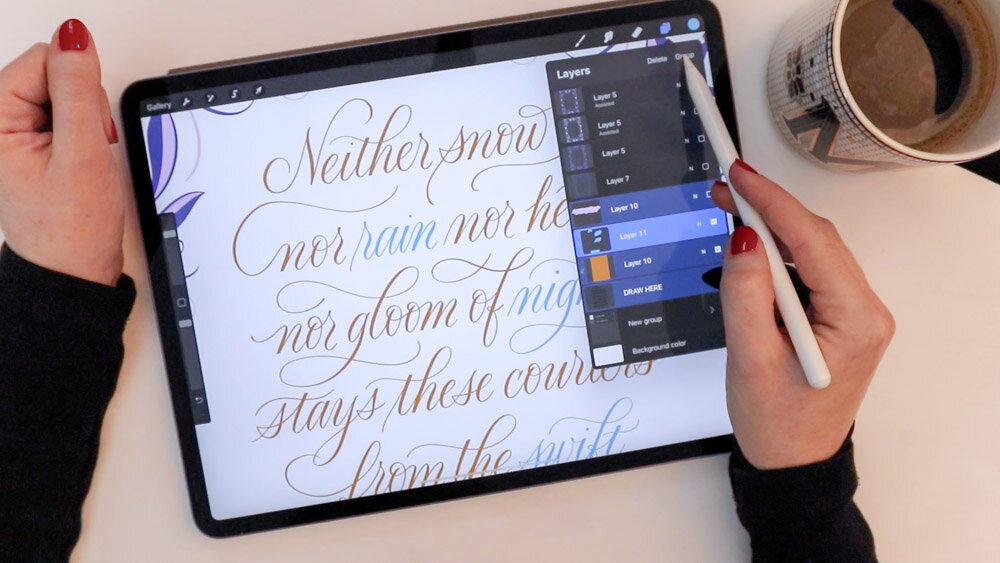 Gallery
S
Neither snow
nor rain nor he
nor gloom of nigh
stays these couriers
from the swift
Layers
Delete
Group
Layer 5
Assisted
N
Layer 5
Assisted
Layer 5
N
Layer 7
N
Layer 10
N
Layer 11
N
Layer 10
N
DRAW HERE
New group
Background color